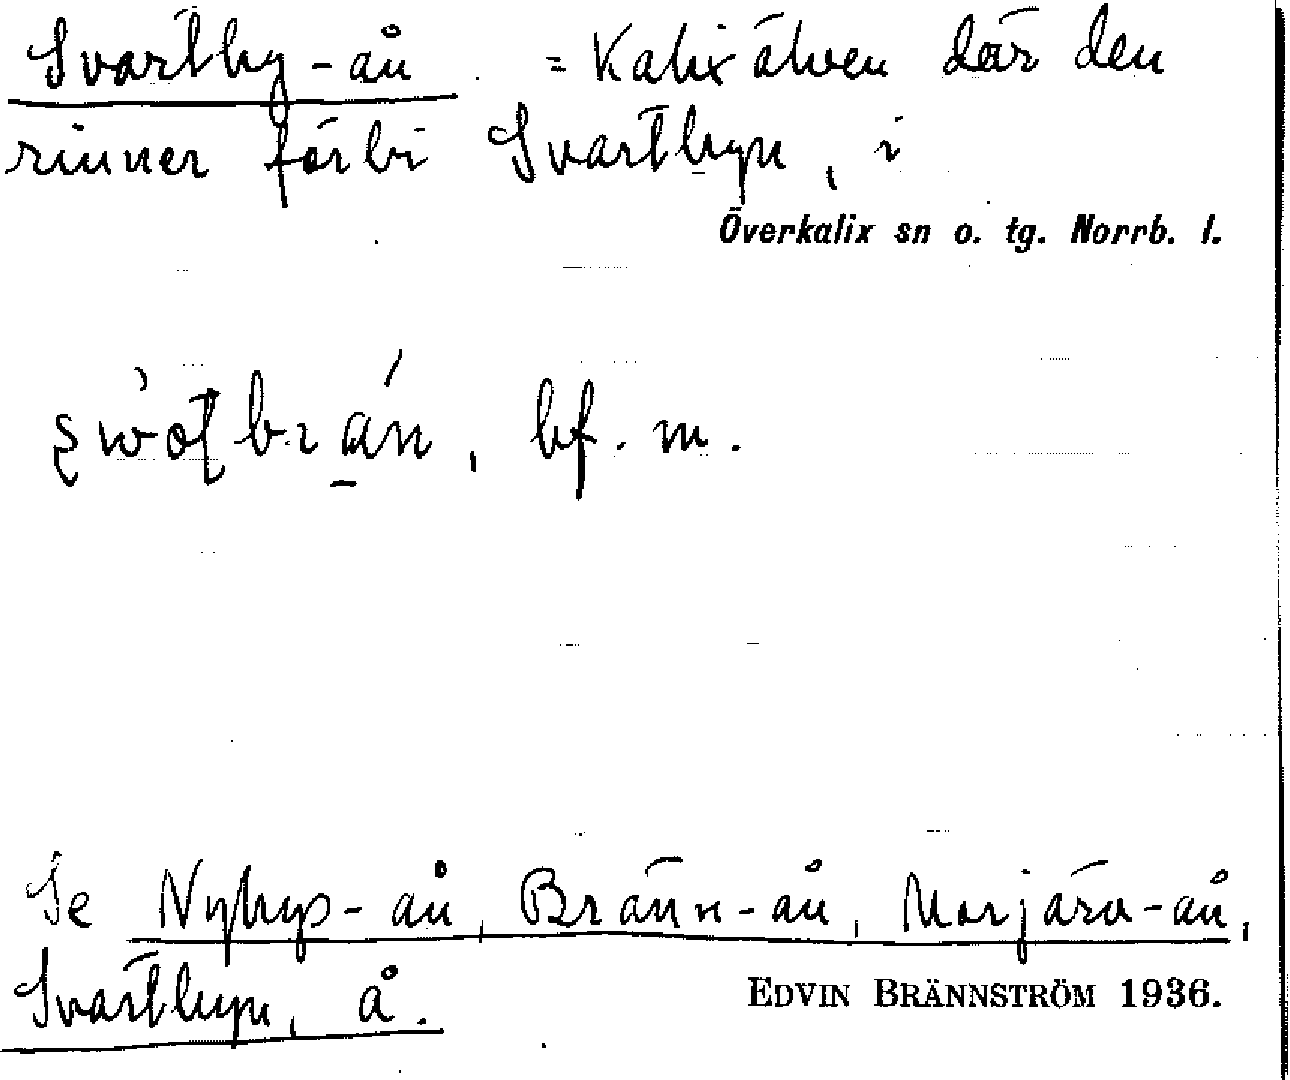 Svartby-ån = Kalixälven där den
rinner förbi Svartbyn, i
Överkalix sn o. tg. Norrb. l.
bf. m.
Se Nybys-ån, Bränn-ån, Morjärv-ån,
Svartbyn, å.
EDVIN BRÄNNSTRÖM 1936.